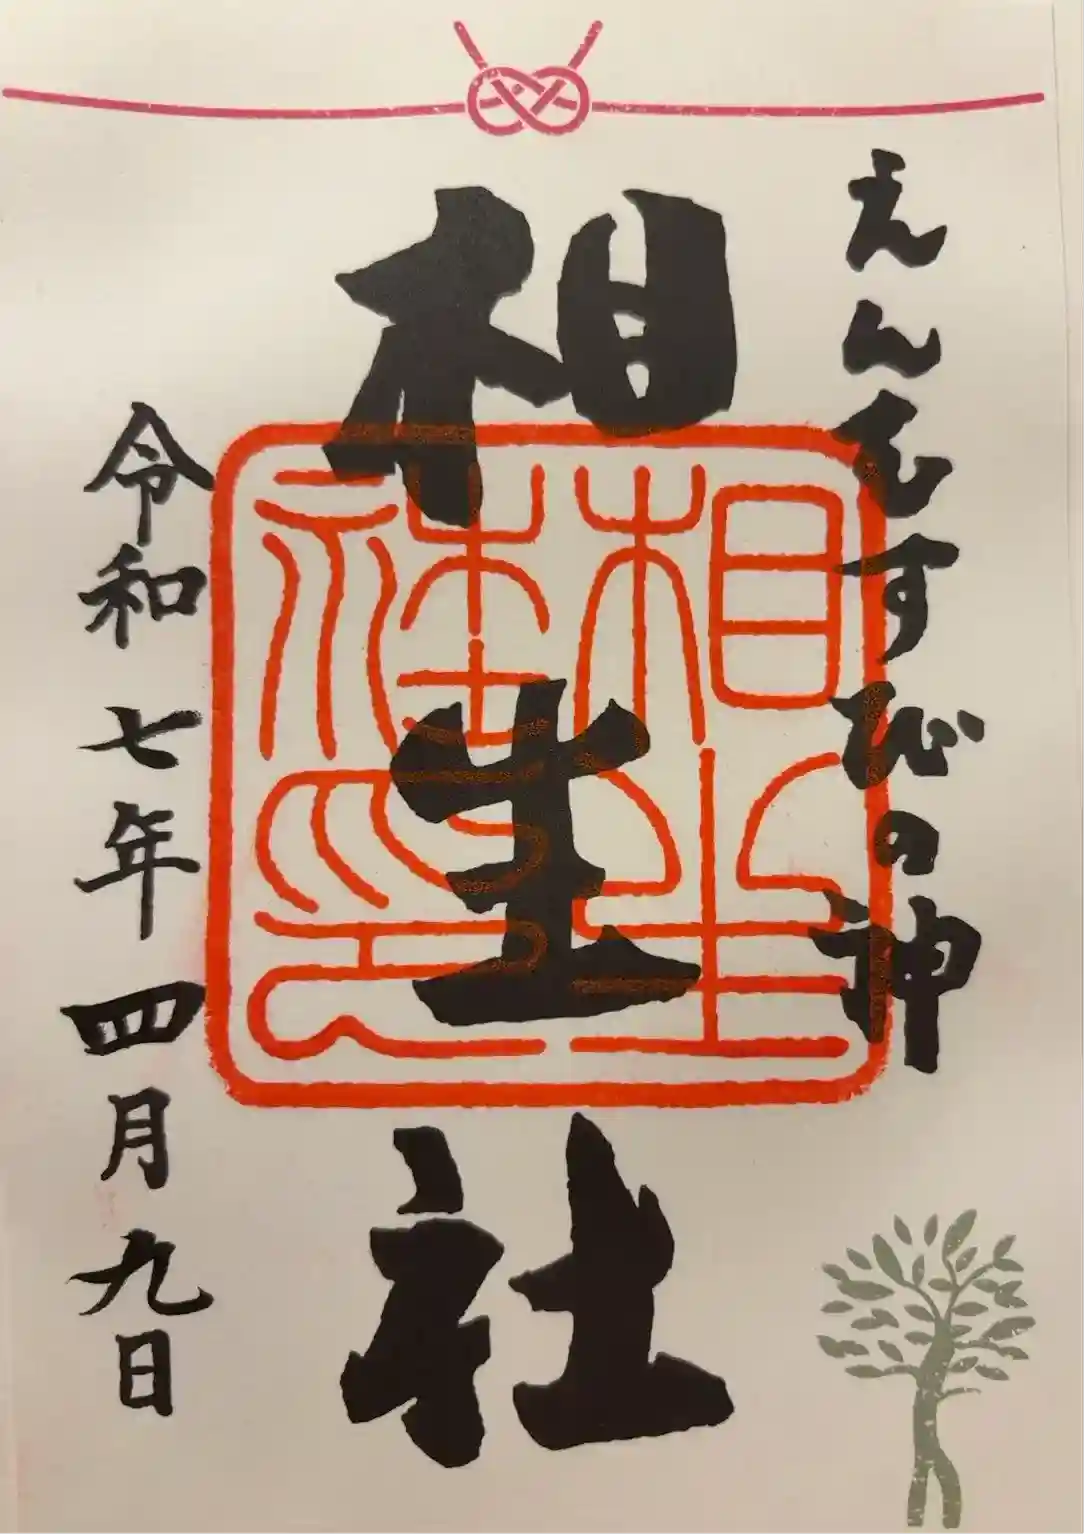 えんむすびの神
相生社
相生社神璽
令和七年四月九日